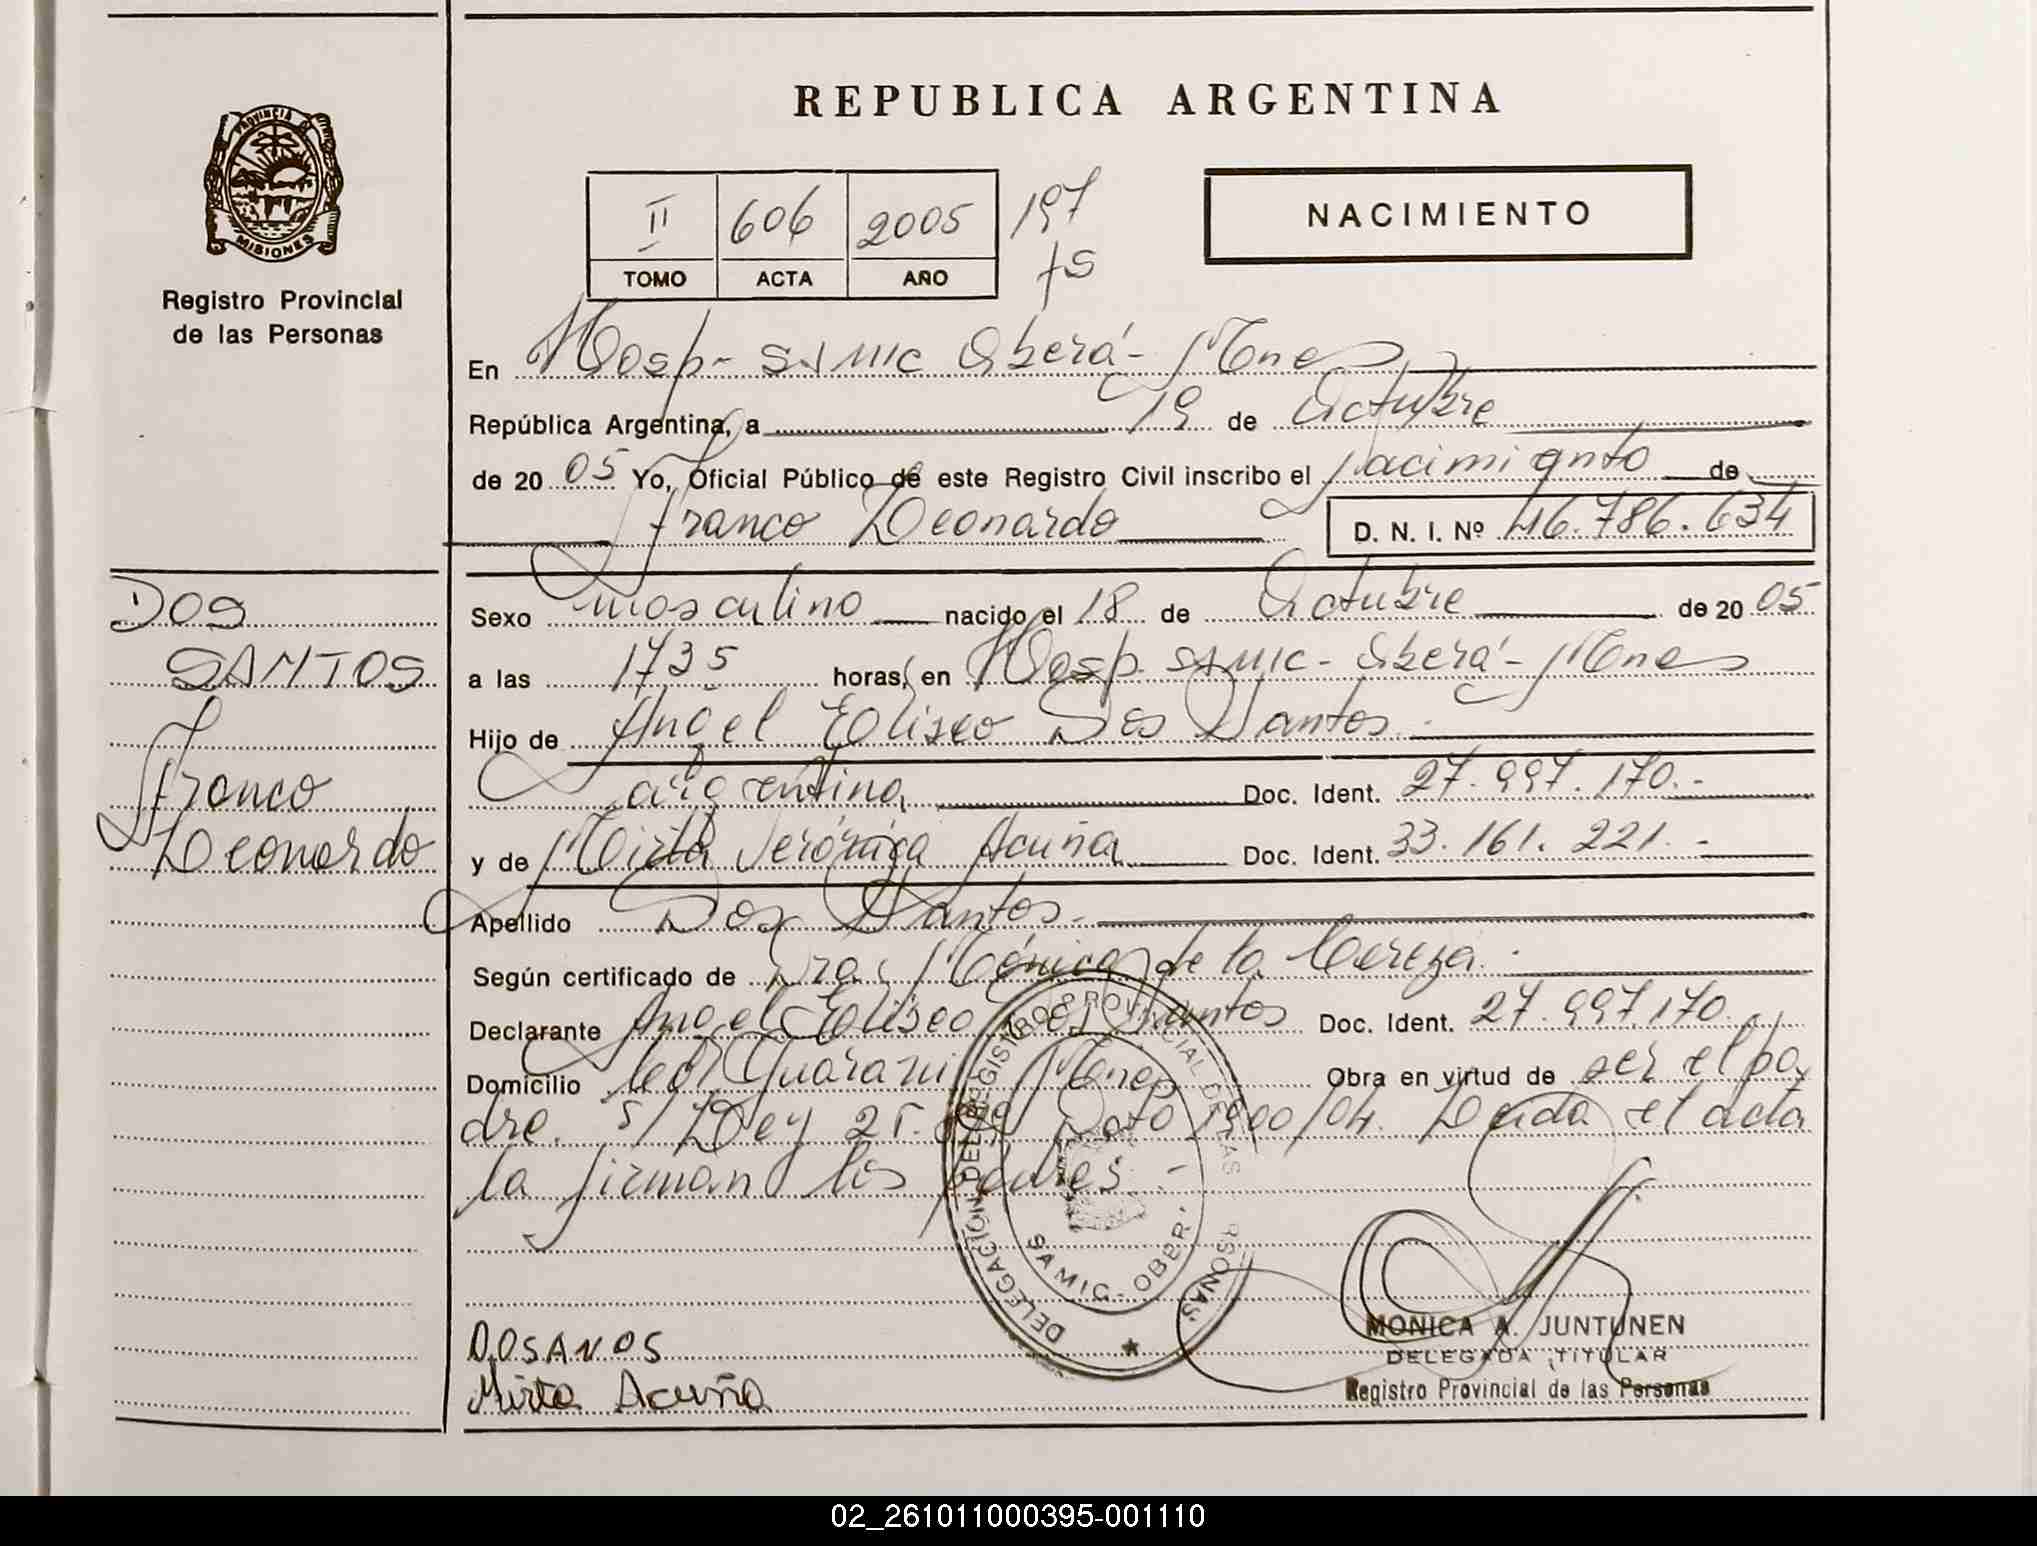 REPUBLICA ARGENTINA
PROVINCIA DE
MISIONES
Registro Provincial
de las Personas
II 606 2005 197
TOMO ACTA AÑO fs
NACIMIENTO
En Hosp- SAMIC Oberá- Mnes
República Argentina, a 19 de Octubre
de 2005 Yo, Oficial Público de este Registro Civil inscribo el nacimiento de
Franco Leonardo D. N. I. Nº 46.786.634
DOS
SANTOS
Franco
Leonardo
Sexo masculino nacido el 18 de Octubre de 2005
a las 1735 horas, en Hosp. SAMIC- Oberá- Mnes
Hijo de Angel Eliseo Dos Santos.
argentina Doc. Ident. 27.997.170.-
y de Mirta Verónica Acuña Doc. Ident. 33.161.221.-
Apellido Dos Santos.
Según certificado de Dra. Mónica de la
Declarante Angel Eliseo Dos Santos Doc. Ident. 27.997.170
Domicilio Col. Guarani Mnes Obra en virtud de ser el pa
dre. s/ Ley Dcto 1900/04. Leida el acta
la firman los padres.-
DELEGACIÓN DEL REGISTRO PROVINCIAL DE LAS PERSONAS
SAMIC - OBER
DOSANOS
Mirta Acuña
MONICA A. JUNTUNEN
DELEGADA TITULAR
Registro Provincial de las Personas
02_261011000395-001110